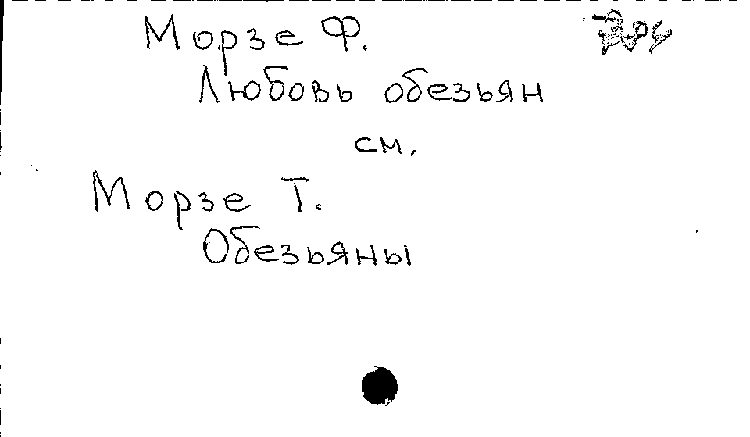 Морзе Ф.
Любовь обезьян
см.
Морзе Т.
Обезьяны